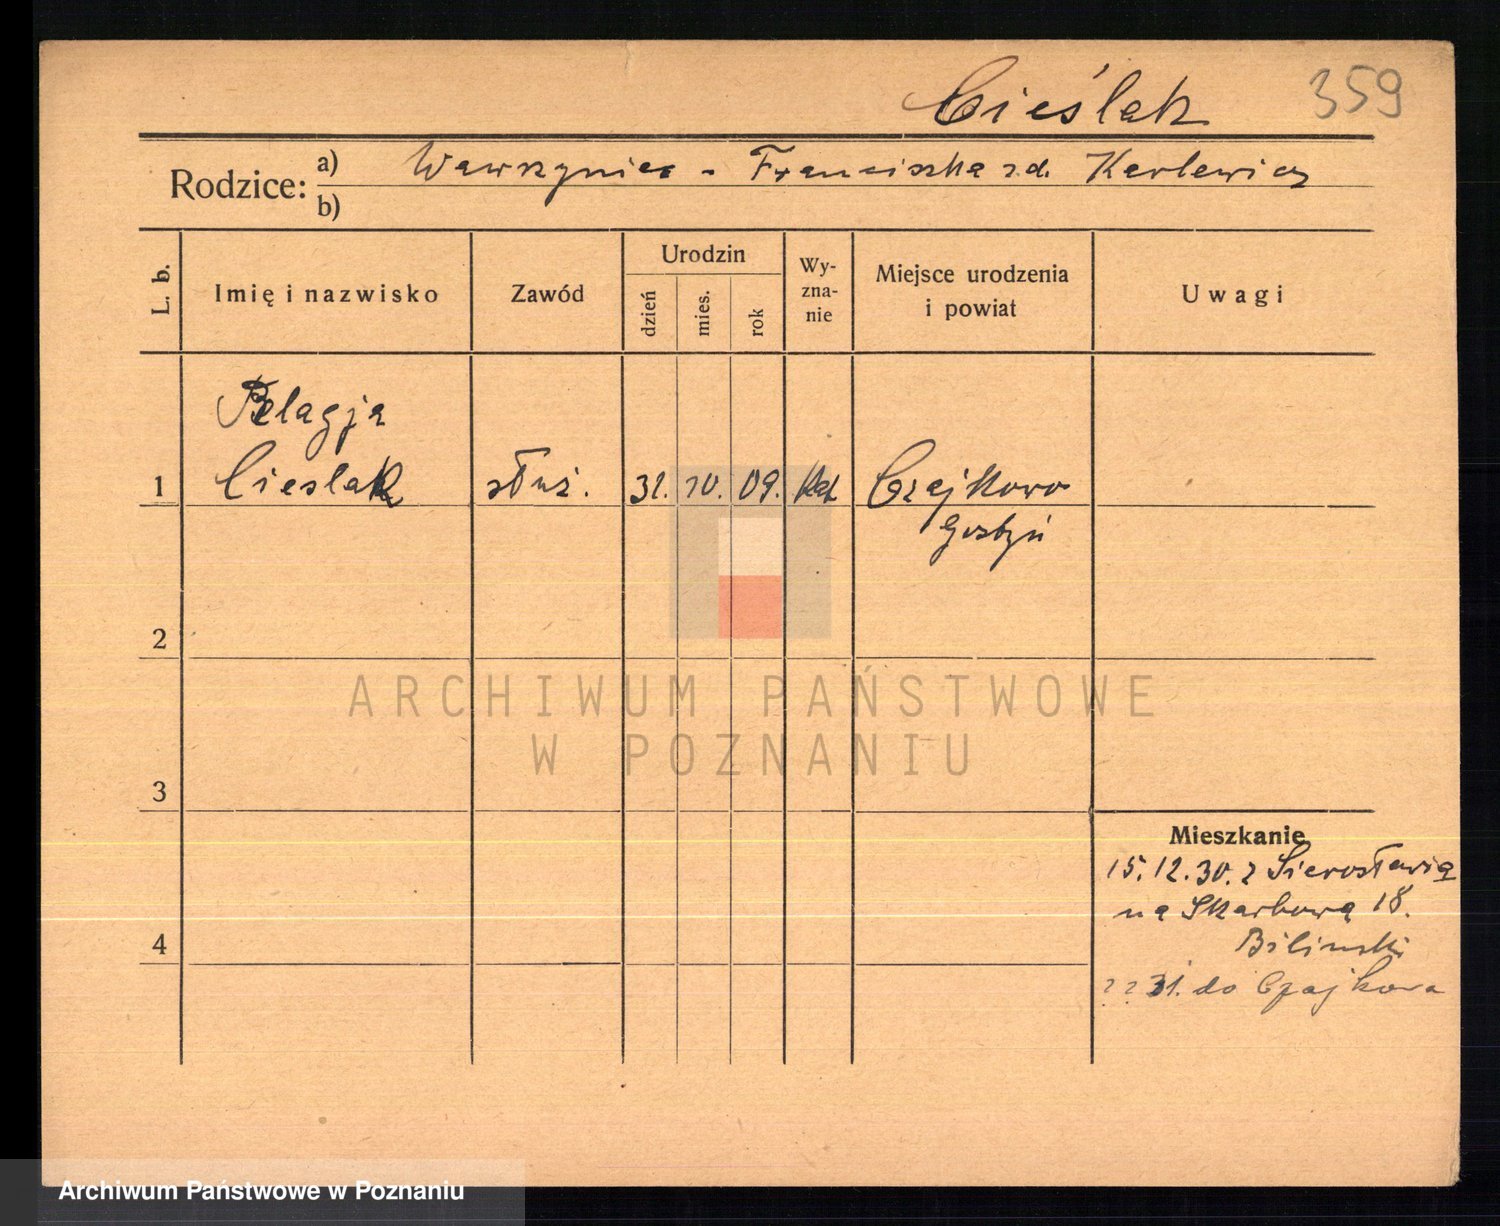 Cieślak 359
Rodzice: a) Wawrzyniec - Franciszka z d. Karlewicz
b)
L. b. Imię i nazwisko Zawód Urodzin dzień mies. rok Wy-zna-nie Miejsce urodzenia i powiat Uwagi
Pelagja
1 Cieslak służ. 31. 10. 09. kat Czajkowo
Gostyń
2
ARCHIWUM PAŃSTWOWE
W POZNANIU
3
Mieszkanie
15.12.30. z Sierosławia
na Skarbową 18.
4 Bilinski
31. do Czajkowa
Archiwum Państwowe w Poznaniu